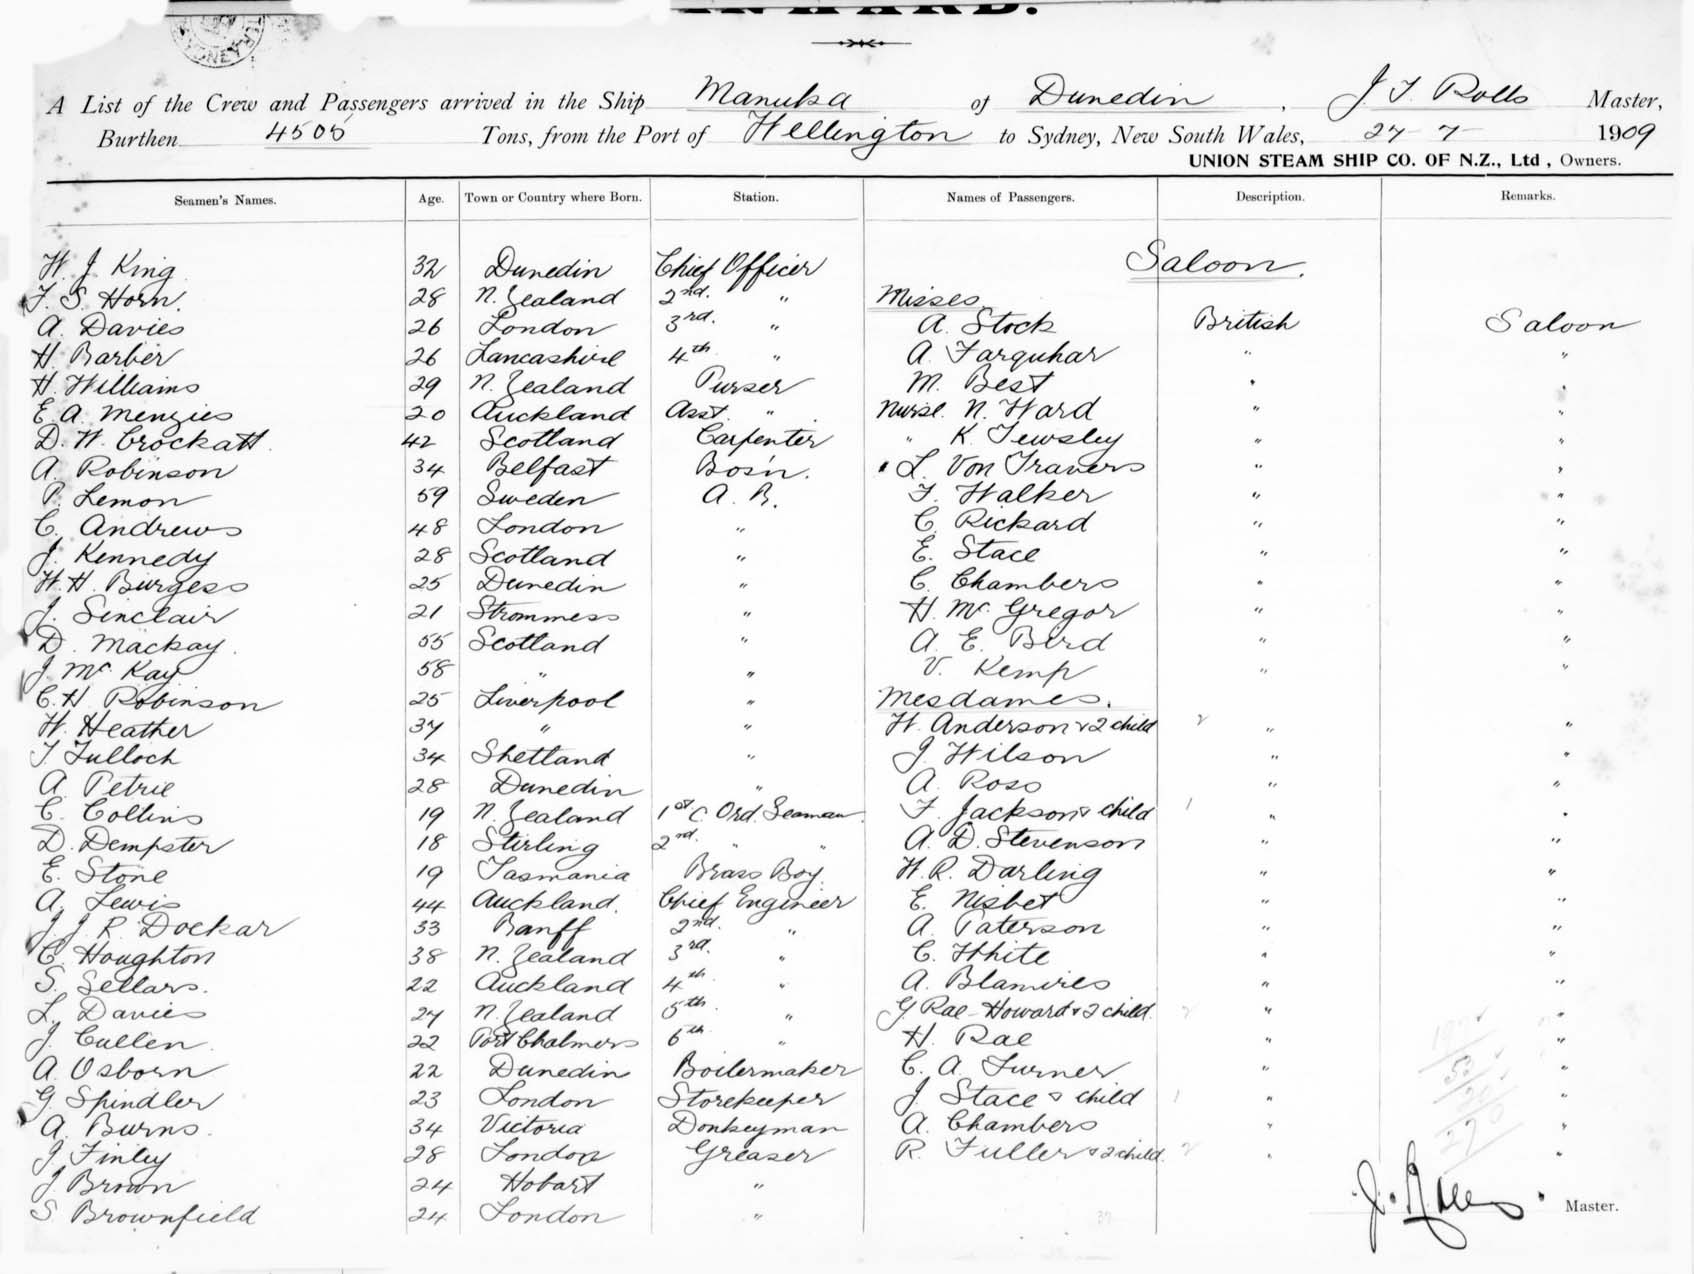 INWARD.
A List of the Crew and Passengers arrived in the Ship Manuka of Dunedin, J F Rolls Master,
Burthen 4505 Tons, from the Port of Wellington to Sydney, New South Wales, 27-7-1909
UNION STEAM SHIP CO. OF N.Z., Ltd, Owners.
Seamen's Names. Age. Town or Country where Born. Station. Names of Passengers. Description. Remarks.
W. J. King 32 Dunedin Chief Officer Saloon.
F. S. Horn. 28 N. Zealand 2nd. " Misses
A. Davies 26 London 3rd. " A. Stock British Saloon
H. Barber 26 Lancashire 4th " A. Farquhar " "
H. Williams 29 N. Zealand Purser M. Best " "
E. A. Menzies 20 Auckland Asst. " Nurse. N. Ward " "
D. W. Crockatt. 42 Scotland Carpenter " K. Tewsley " "
A. Robinson 34 Belfast Bos'n. L. Von Travers " "
P. Lemon 59 Sweden A. B. F. Walker " "
C. Andrews 48 London " C. Rickard " "
J. Kennedy 28 Scotland " E. Stace " "
W. H. Burgess 25 Dunedin " C. Chambers " "
J. Sinclair 21 Strommess " H. Mc Gregor " "
D. Mackay. 55 Scotland " A. E. Bird " "
J. Mc Kay 58 " " V. Kemp " "
C. H. Robinson 25 Liverpool " Mesdames.
W. Heather 37 " " W. Anderson & 2 child 2 " "
T. Tulloch 34 Shetland " J. Wilson " "
A. Petrie 28 Dunedin " A. Ross " "
C. Collins 19 N. Zealand 1st C. Ord. Seaman F. Jackson & child 1 " "
D. Dempster 18 Stirling 2nd. " " A. D. Stevenson " "
E. Stone 19 Tasmania Brass Boy. W. R. Darling " "
A. Lewis 44 Auckland. Chief Engineer E. Nisbet " "
J. J. R. Dockar 33 Banff 2nd. " A. Paterson " "
C. Houghton 38 N. Zealand 3rd. " C. White " "
S. Sellars. 22 Auckland 4th " A. Blamires " "
L. Davies 27 N. Zealand 5th " G. Rae-Howard & 2 child. 2 " "
J. Cullen. 22 Port Chalmers 6th " H. Rae " "
A. Osborn 22 Dunedin Boilermaker C. A. Turner " "
G. Spindler 23 London Storekeeper J. Stace & child 1 " "
A. Burns. 34 Victoria Donkeyman A. Chambers " "
J. Finley 28 London Greaser R. Fuller & 2 child. 2 " "
J. Brown 24 Hobart "
S. Brownfield 24 London "
J. Rolls Master.